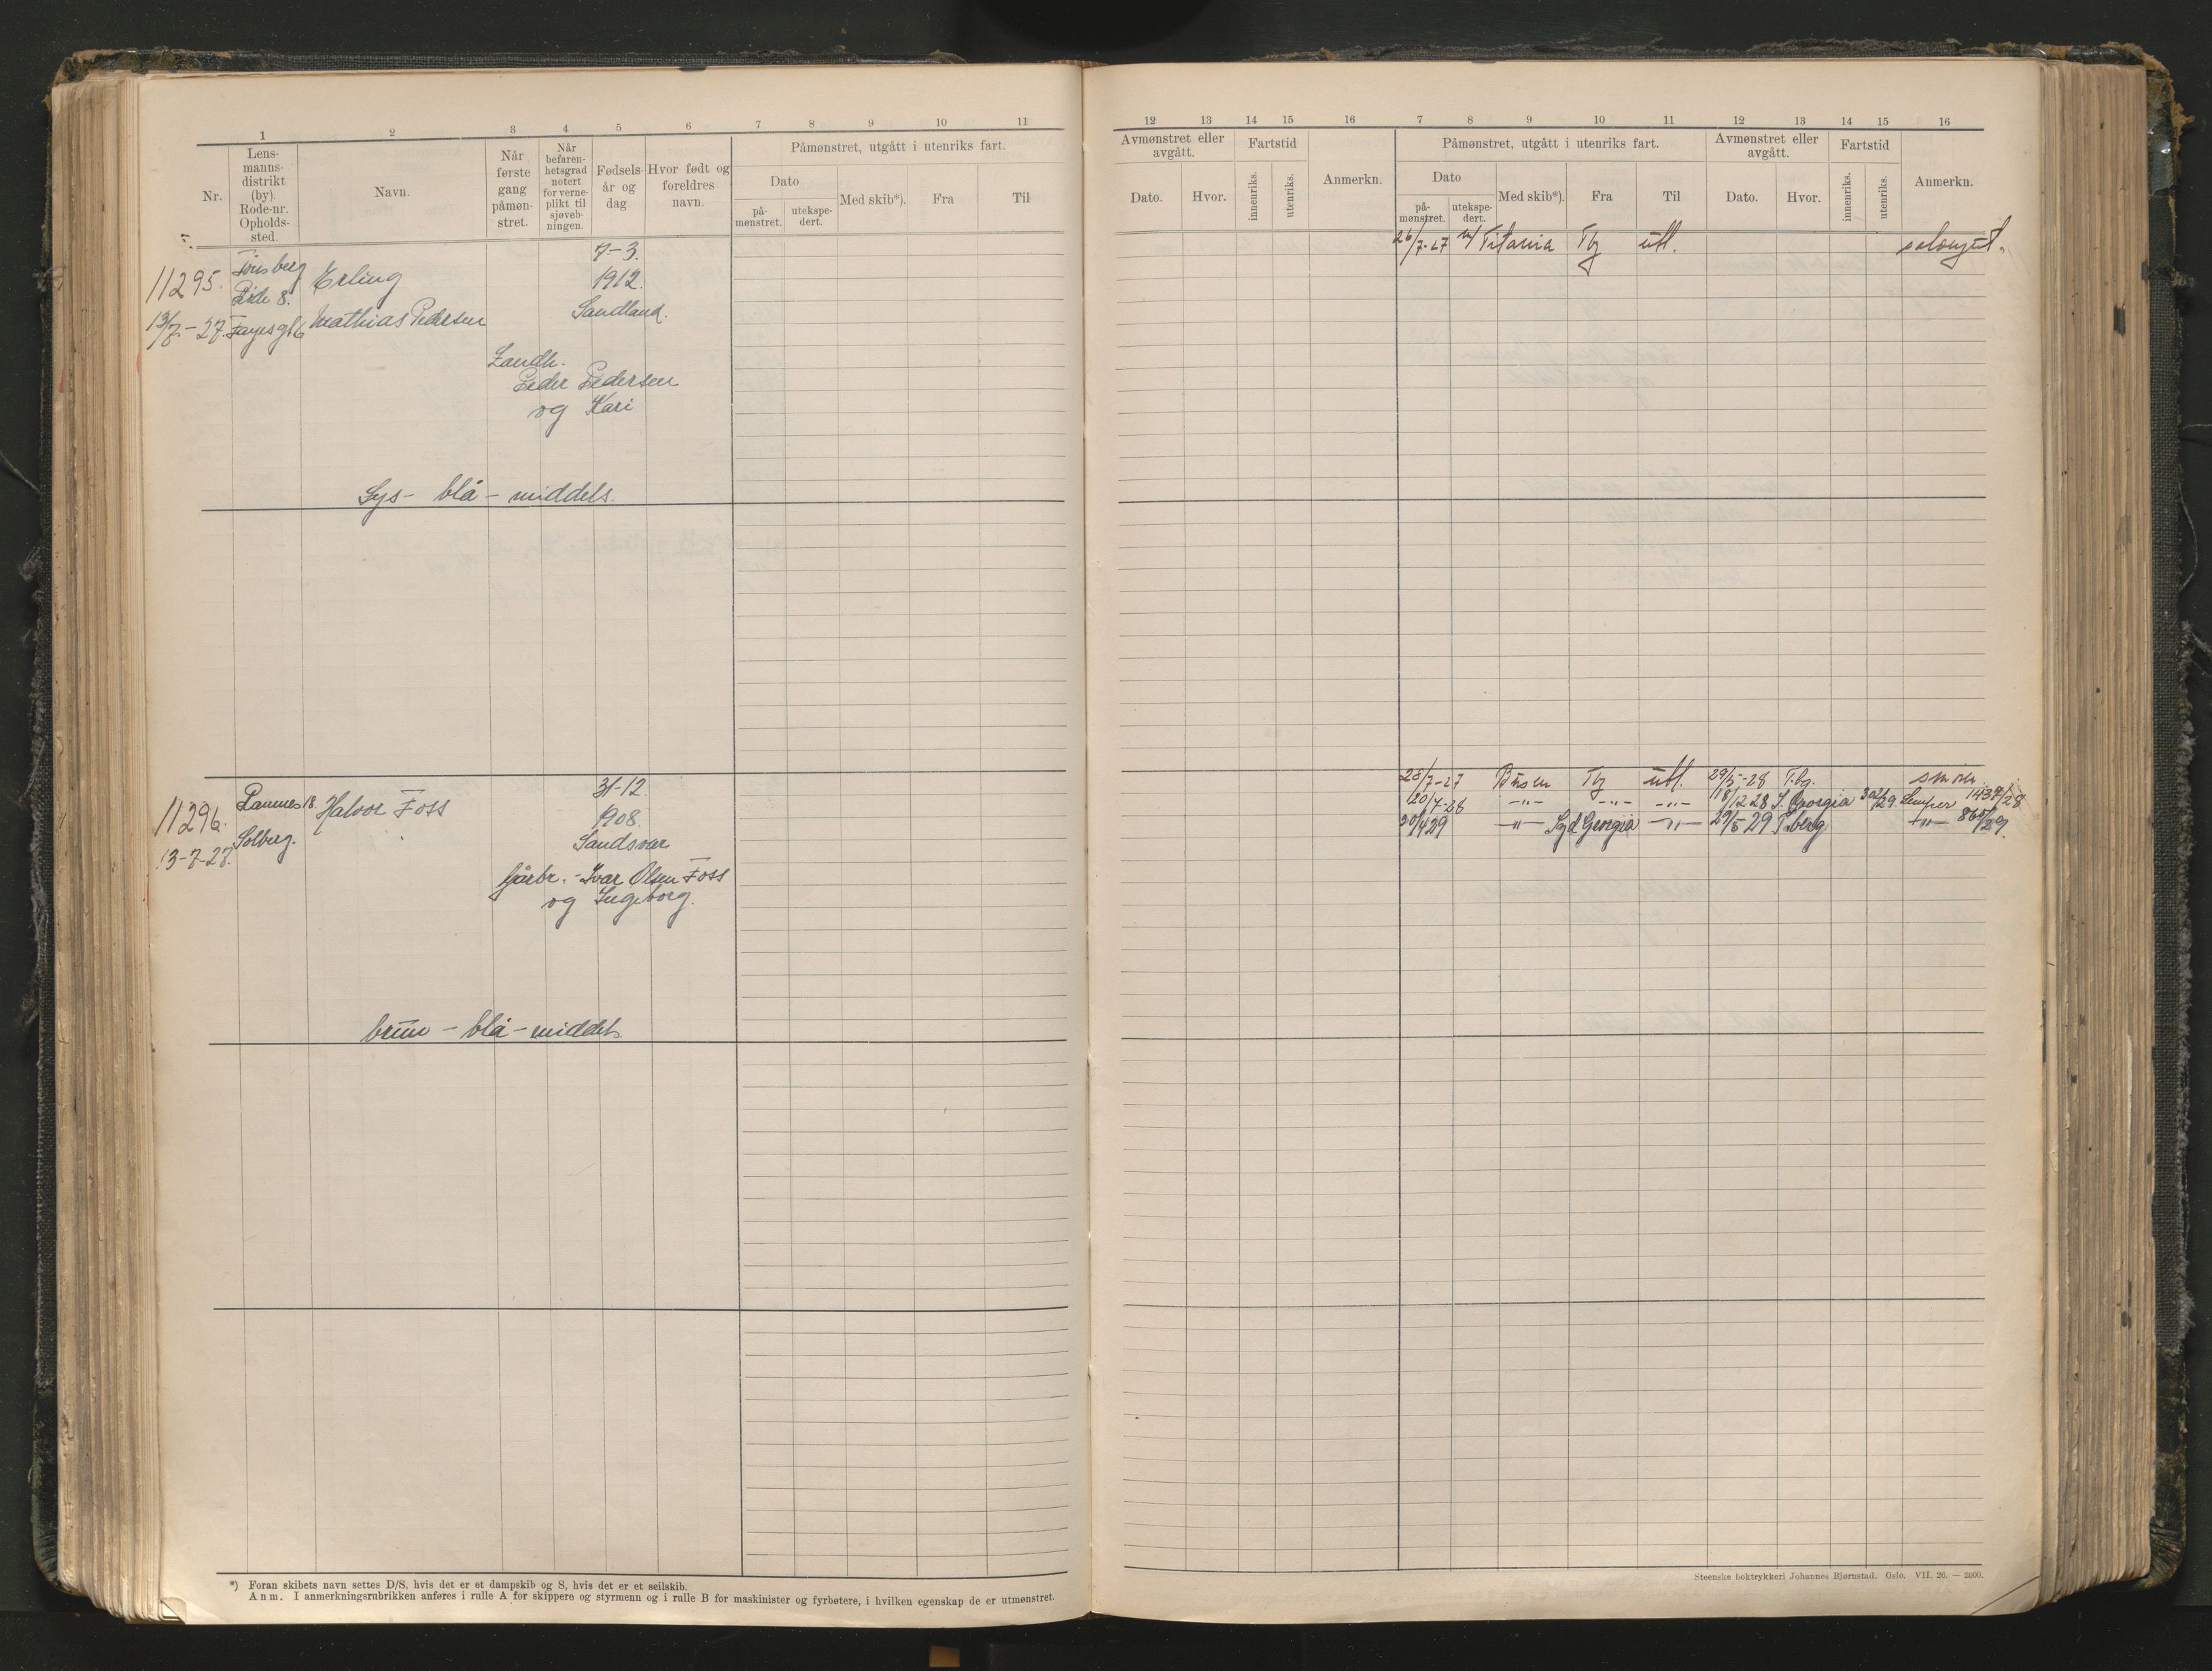 1 2 3 4 5 6 7 8 9 10 11
Nr.
Lens-
manns-
distrikt
(by).
Rode-nr.
Opholds-
sted.
Navn.
Når
første
gang
påmøn-
stret.
Når
befaren-
hetsgrad
notert
for verne-
plikt til
sjøveb-
ningen.
Fødsels-
år og
dag
Hvor født og
foreldres
navn.
Påmønstret, utgått i utenriks fart.
Dato
på-
mønstret.
utekspe-
dert.
Med skib*).
Fra
Til
11295.
13/7.-27.
Tønsberg
Rode 8.
Erling
Mathias Pedersen
7-3.
1912.
Sandland.
Landh.
Peder Pedersen
og Kari
Lys - blå - middels.
11296.
13-7-27.
Ramnes 18.
Solberg.
Halvor Foss
31-12.
1908.
Sandsvær
Gårbr. - Ivar Olsen Foss
og Ingeborg.
brun - blå - middels
*) Foran skibets navn settes D/S, hvis det er et dampskib og S, hvis det er et seilskib.
Anm. I anmerkningsrubrikken anføres i rulle A for skippere og styrmenn og i rulle B for maskinister og fyrbøtere, i hvilken egenskap de er utmønstret.
12 13 14 15 16 7 8 9 10 11 12 13 14 15 16
Avmønstret eller
avgått.
Dato. Hvor.
Fartstid
innenriks.
utenriks.
Anmerkn.
Påmønstret, utgått i utenriks fart.
Dato
på-
mønstret.
utekspe-
dert.
Med skib*).
Fra
Til
Avmønstret eller
avgått.
Dato. Hvor.
Fartstid
innenriks.
utenriks.
Anmerkn.
26/7-27 M/ Titania Tbg utl. salongut.
28/7-27 Busen Tbg utl. 29/5-28 Tbg. smører
20/7-28 -"- -"- -"- 18/12 28 S. Georgia Lemper 1437/28
20/4 29 -"- Syd Georgia -"- 29/5 29 T.berg -"- 860/29.
Steenske boktrykkeri Johannes Bjørnstad. Oslo. VII. 26. — 2000.